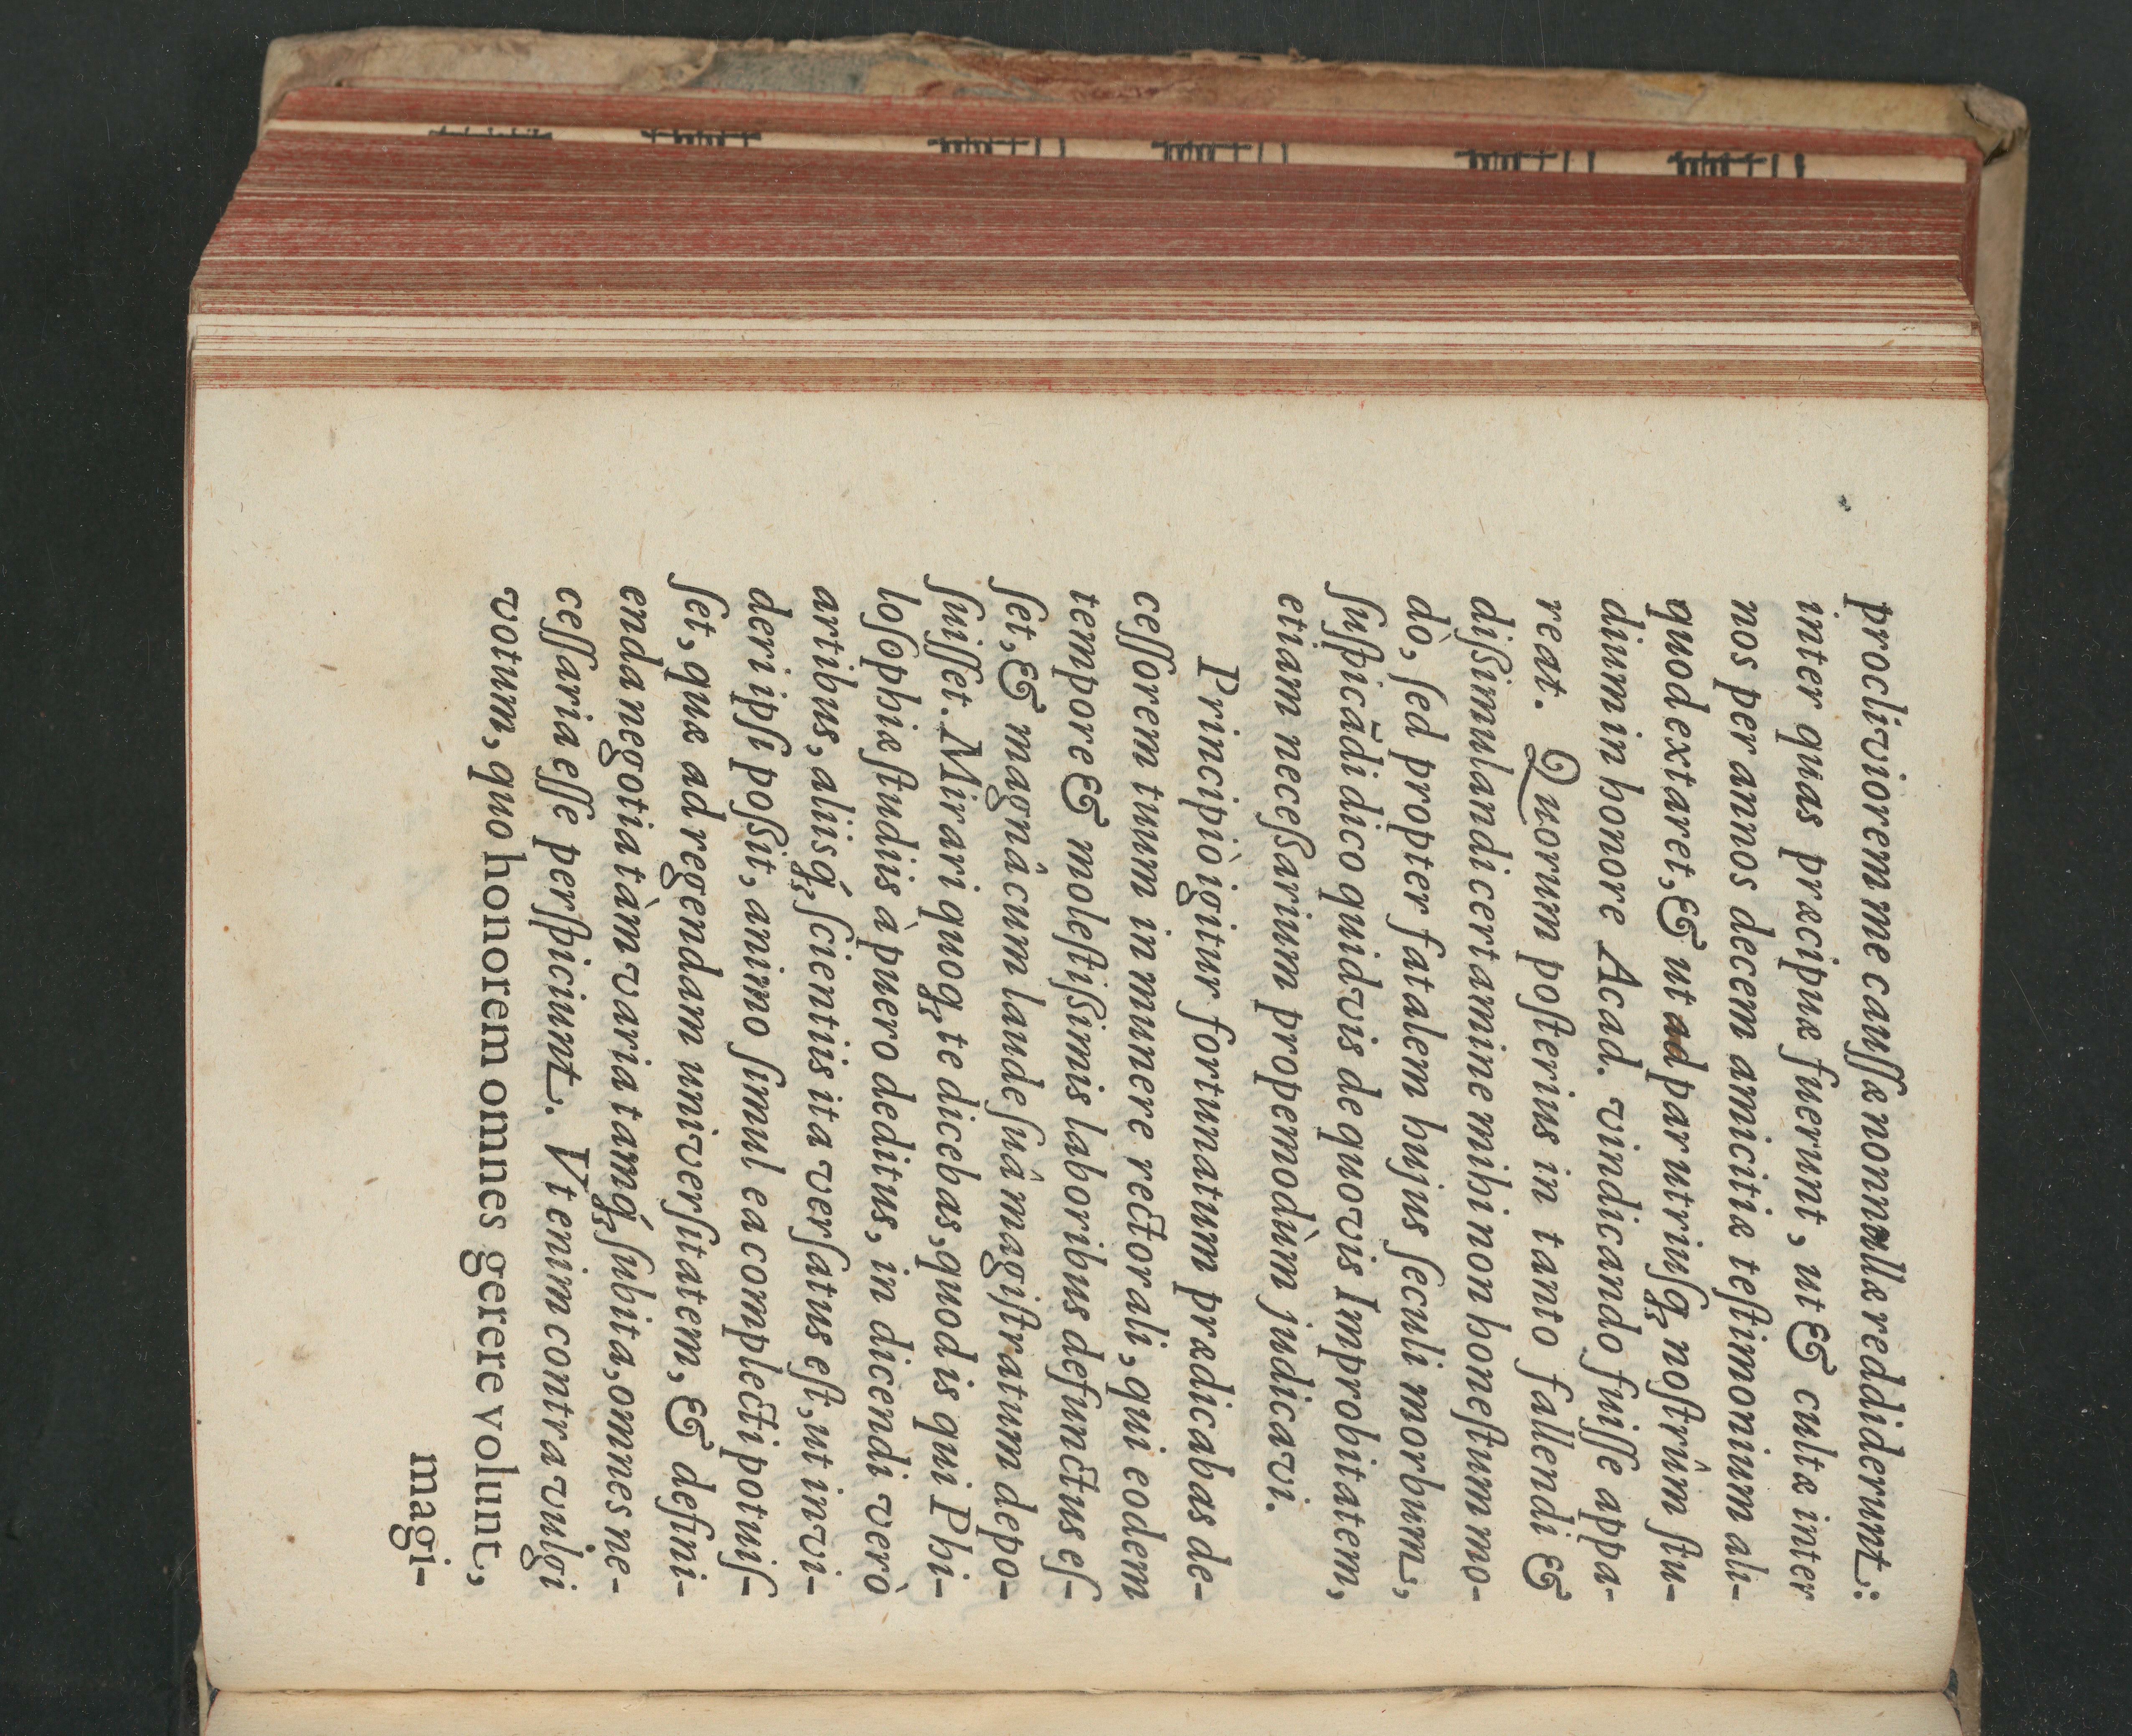 procliviorem me cauſſæ nonnullæ reddiderunt:
inter quas præcipuæ fuerunt, ut & cultæ inter
nos per annos decem amicitiæ teſtimonium ali-
quod extaret, & ut ad par utriuſq; noſtrûm ſtu-
dium in honore Acad. vindicando fuiſſe appa-
reat. Quorum poſterius in tanto fallendi &
diſsimulandi certamine mihi non honeſtum mo-
dò, ſed propter fatalem hujus ſeculi morbum,
ſuſpicādi dico quidvis de quovis Improbitatem,
etiam neceſsarium propemodùm judicavi.
Principiò igitur fortunatum prædicabas de-
ceſſorem tuum in munere rectorali, qui eodem
tempore & moleſtiſsimis laboribus defunctus eſ-
ſet, & magnâ cum laude ſuâ magiſtratum depo-
ſuiſſet. Mirari quoq; te dicebas, quod is qui Phi-
loſophiæ ſtudiis à puero deditus, in dicendi verò
artibus, aliisq́; ſcientiis ita verſatus eſt, ut invi-
deri ipſi poſsit, animo ſimul ea complecti potuiſ-
ſet, quæ ad regendam univerſitatem, & defini-
enda negotia tàm varia tamq́; ſubita, omnes ne-
ceſſaria eſſe perſpiciunt. Vt enim contra vulgi
votum, quo honorem omnes gerere volunt,
magi-